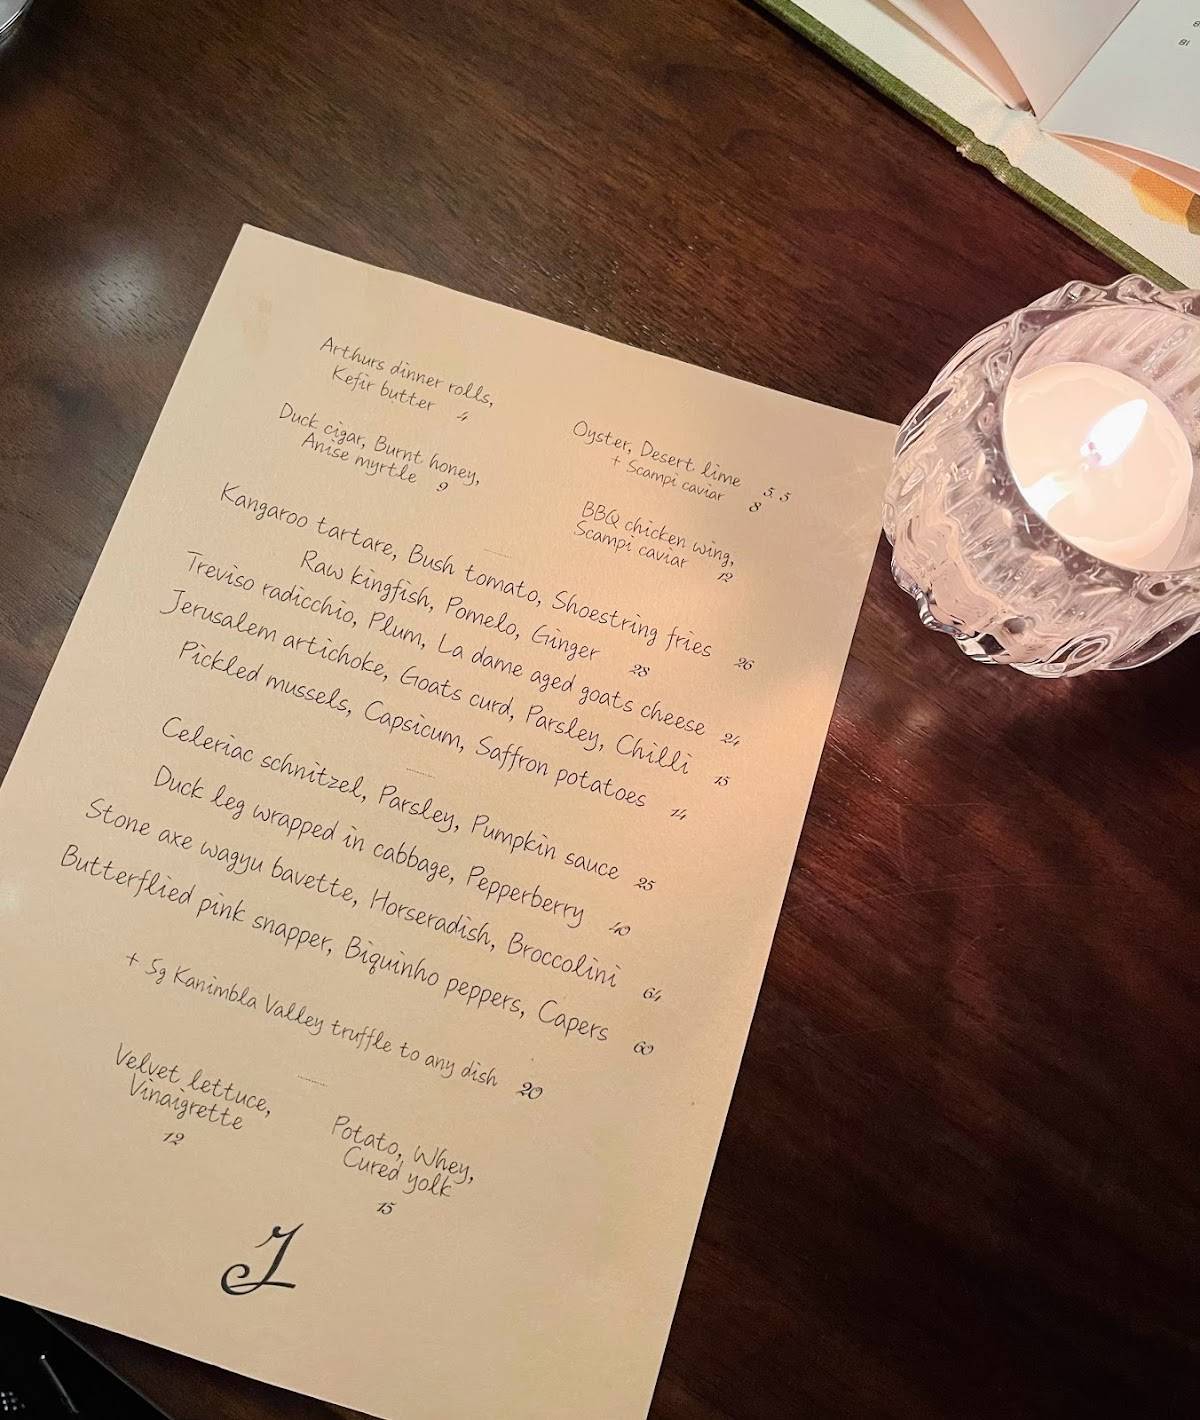 Arthurs dinner rolls,
Kefir butter 4
Duck cigar, Burnt honey,
Anise myrtle 9
Oyster, Desert lime 5.5
+ Scampi caviar 8
BBQ chicken wing,
Scampi caviar 12
Kangaroo tartare, Bush tomato, Shoestring fries 26
Raw kingfish, Pomelo, Ginger 28
Treviso radicchio, Plum, La dame aged goats cheese 24
Jerusalem artichoke, Goats curd, Parsley, Chilli 15
Pickled mussels, Capsicum, Saffron potatoes 14
Celeriac schnitzel, Parsley, Pumpkin sauce 25
Duck leg wrapped in cabbage, Pepperberry 40
Stone axe wagyu bavette, Horseradish, Broccolini 64
Butterflied pink snapper, Biquinho peppers, Capers 60
+ 5g Kanimbla Valley truffle to any dish 20
Velvet lettuce,
Vinaigrette
12
Potato, Whey,
Cured yolk
15